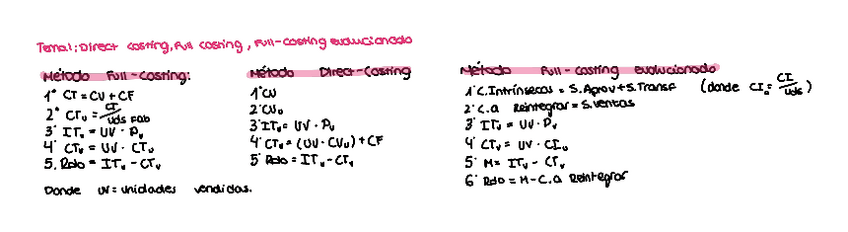 Tema1: Direct costing, Full costing, Full-costing evolucionado
Método Full-Costing:
1° CT = CU + CF
2° CTu = CT/uds Fab
3° ITv = UV · Pv
4° CTv = UV · CTu
5. Rdo = ITv - CTv
Donde UV = unidades vendidas.
Método Direct-Costing
1° CU
2° CUu
3° ITv = UV · Pv
4° CTv = (UV · CVu) + CF
5° Rdo = ITv - CTv
Método Full-costing evolucionado
1° C.Intrínsecos = S.Aprov + S.Transf (donde CIu = CI/uds)
2° C.a Reintegrar = S.Ventas
3° ITv = UV · Pv
4° CTv = UV · CIu
5° M = ITv - CTv
6° Rdo = M - C.a Reintegrar